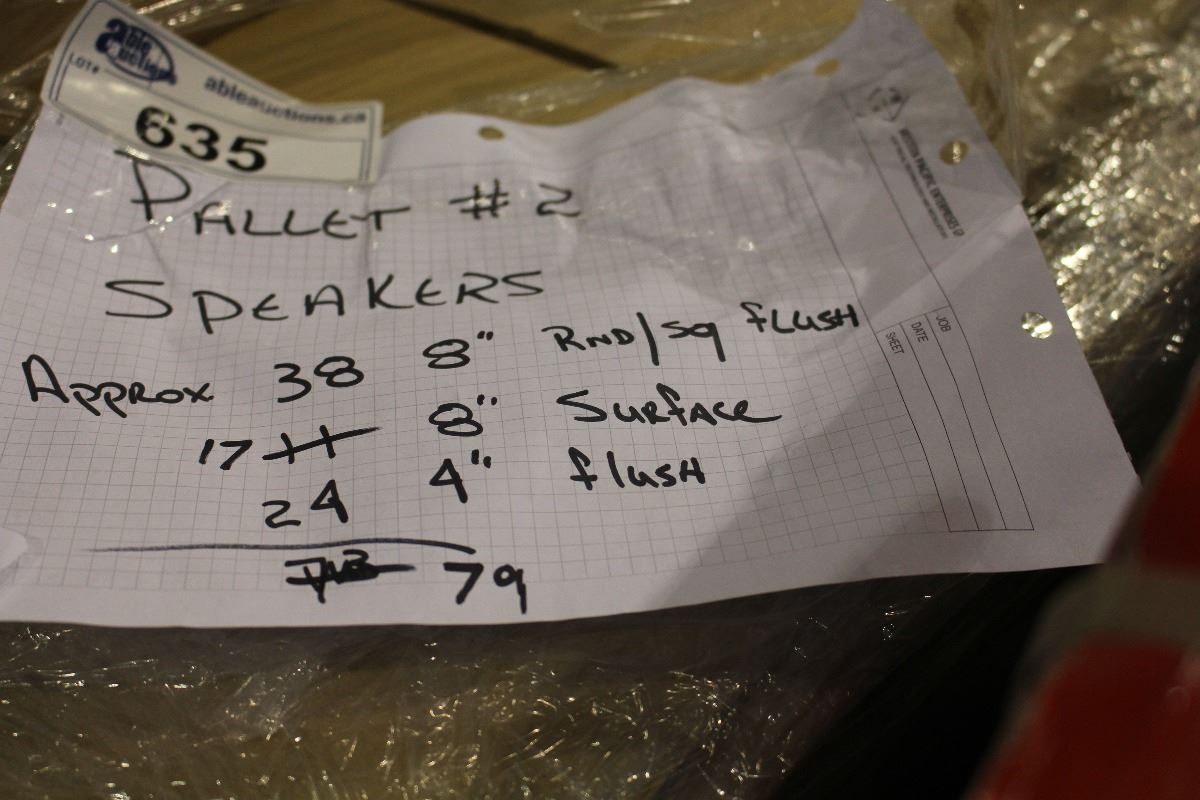 able auctions
LOT#
ableauctions.ca
635
PALLET # 2
SPEAKERS
APPROX 38 8" RND/SQ FLUSH
17 8" SURFACE
24 4" FLUSH
79
WESTERN PACIFIC ENTERPRISES
JOB
DATE
SHEET